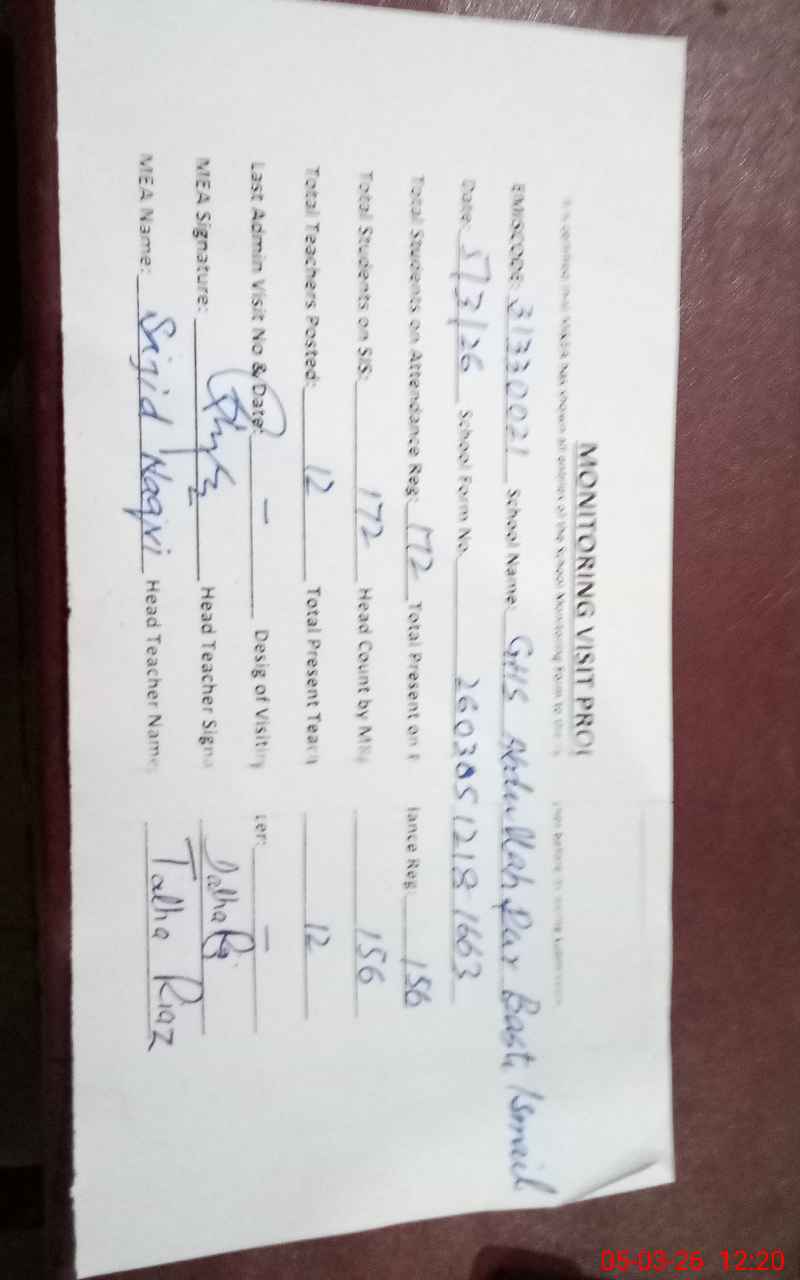 MONITORING VISIT PROF
It is certified that MNEA has shown all entries of the School Monitoring Form to the
EMISCODE: 31330021 School Name: GHS Abdullah Pur Basti Ismail
Date: 5/3/26 School Form No. 260305 1218 1663
Total Students on Attendance Reg: 172 Total Present on lance Reg: 156
Total Students on SIS: 172 Head Count by 156
Total Teachers Posted: 12 Total Present Teach 12
Last Admin Visit No & Date: - Desig of Visiting cer: -
MEA Signature: Head Teacher Signa Talha
MEA Name: Sajid Naqvi Head Teacher Name: Talha Riaz
05-03-26 12:20